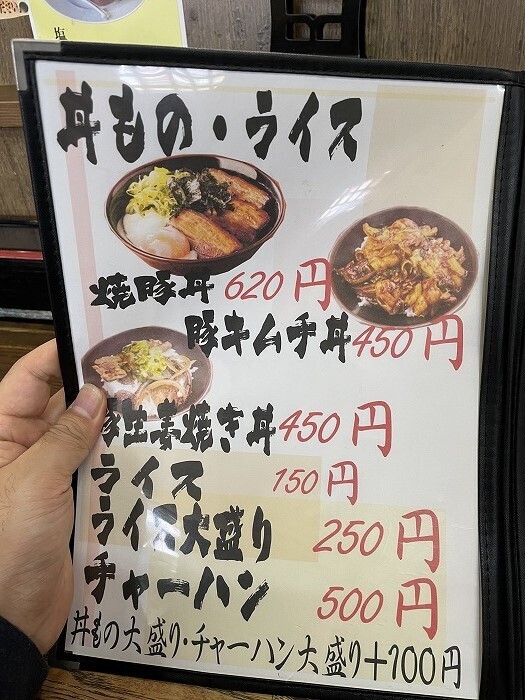 塩
丼もの・ライス
焼豚丼 620円
豚キムチ丼 450円
豚生姜焼き丼 450円
ライス 150円
ライス大盛り 250円
チャーハン 500円
丼もの大盛り・チャーハン大盛り+100円